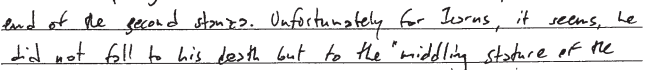 end of the second stanza. Unfortunately for Icarus, it seems, he
did not fall to his death but to the "middling stature of the